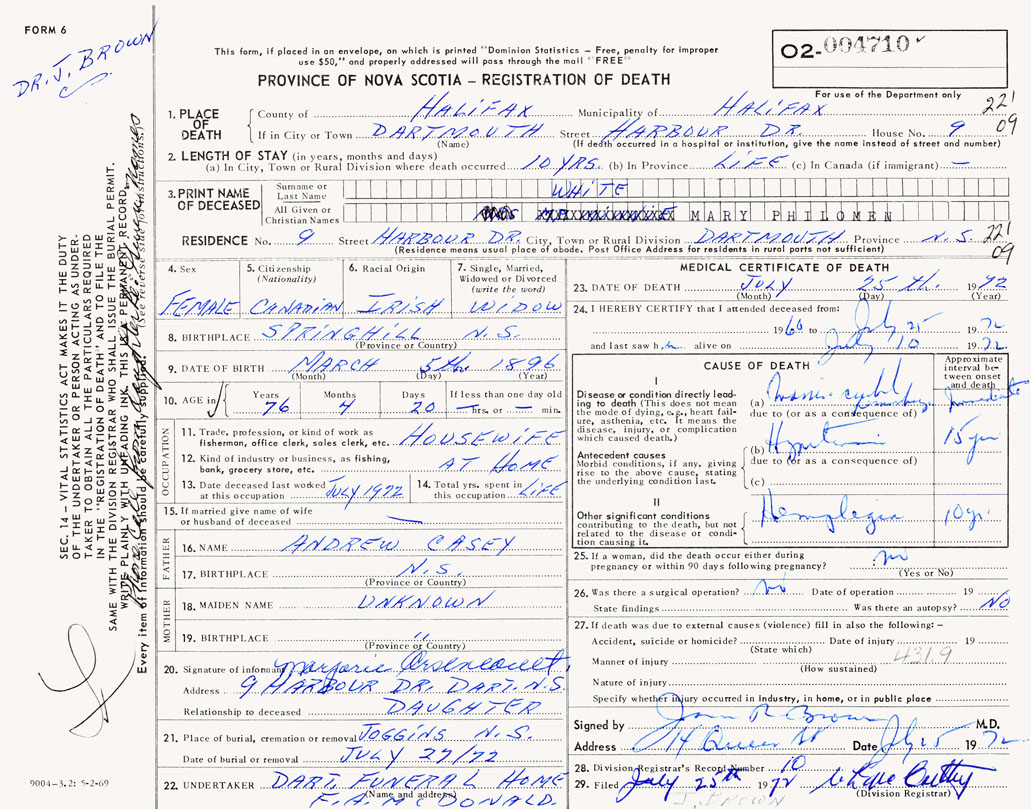 FORM 6
DR. J. BROWN
This form, if placed in an envelope, on which is printed "Dominion Statistics – Free, penalty for improper
use $50," and properly addressed will pass through the mail "FREE"
PROVINCE OF NOVA SCOTIA – REGISTRATION OF DEATH
02-004710
For use of the Department only
221
09
1. PLACE OF DEATH
County of HALIFAX Municipality of HALIFAX
If in City or Town DARTMOUTH Street HARBOUR DR. House No. 9
(Name) (If death occurred in a hospital or institution, give the name instead of street and number)
2. LENGTH OF STAY (in years, months and days)
(a) In City, Town or Rural Division where death occurred 10 YRS. (b) In Province LIFE (c) In Canada (if immigrant) —
3. PRINT NAME OF DECEASED
Surname or Last Name WHITE
All Given or Christian Names MARY PHILOMEN
RESIDENCE No. 9 Street HARBOUR DR. City, Town or Rural Division DARTMOUTH Province N.S.
(Residence means usual place of abode. Post Office Address for residents in rural parts not sufficient)
221
09
4. Sex FEMALE
5. Citizenship (Nationality) CANADIAN
6. Racial Origin IRISH
7. Single, Married, Widowed or Divorced (write the word) WIDOW
8. BIRTHPLACE SPRINGHILL N.S.
(Province or Country)
9. DATE OF BIRTH MARCH 5th 1896
(Month) (Day) (Year)
10. AGE in Years Months Days If less than one day old
76 4 20 — hrs. or — min.
OCCUPATION
11. Trade, profession, or kind of work as
fisherman, office clerk, sales clerk, etc. HOUSEWIFE
12. Kind of industry or business, as fishing,
bank, grocery store, etc. AT HOME
13. Date deceased last worked at this occupation JULY 1972
14. Total yrs. spent in this occupation LIFE
15. If married give name of wife
or husband of deceased —
FATHER
16. NAME ANDREW CASEY
17. BIRTHPLACE N.S.
(Province or Country)
MOTHER
18. MAIDEN NAME UNKNOWN
19. BIRTHPLACE "
(Province or Country)
20. Signature of informant Marjorie Arseneault
Address 9 HARBOUR DR. DART. N.S.
Relationship to deceased DAUGHTER
21. Place of burial, cremation or removal JOGGINS N.S.
Date of burial or removal JULY 27/72
22. UNDERTAKER DART. FUNERAL HOME
(Name and address)
F.A. McDONALD.
MEDICAL CERTIFICATE OF DEATH
23. DATE OF DEATH JULY 25 th. 1972
(Month) (Day) (Year)
24. I HEREBY CERTIFY that I attended deceased from:
1966 to July 25 1972
and last saw her alive on July 10 1972
CAUSE OF DEATH
Approximate interval between onset and death
I
Disease or condition directly leading to death (This does not mean the mode of dying, e.g., heart failure, asthenia, etc. It means the disease, injury, or complication which caused death.)
(a) Immediate
due to (or as a consequence of)
Antecedent causes
Morbid conditions, if any, giving rise to the above cause, stating the underlying condition last.
(b) Hypertension 15 yrs
due to (or as a consequence of)
(c)
II
Other significant conditions
contributing to the death, but not related to the disease or condition causing it.
Hemiplegia 10 yr.
25. If a woman, did the death occur either during
pregnancy or within 90 days following pregnancy? no
(Yes or No)
26. Was there a surgical operation? no Date of operation 19
State findings Was there an autopsy? NO
27. If death was due to external causes (violence) fill in also the following: –
Accident, suicide or homicide? Date of injury 19
(State which)
Manner of injury 431.9
(How sustained)
Nature of injury
Specify whether injury occurred in industry, in home, or in public place
Signed by John R Brown M.D.
Address 14 Queen St Date July 25 1972
28. Division Registrar's Record Number 10
29. Filed July 25th 1972
(Division Registrar)
J. BROWN
SEC. 14 – VITAL STATISTICS ACT MAKES IT THE DUTY
OF THE UNDERTAKER OR PERSON ACTING AS UNDER-
TAKER TO OBTAIN ALL THE PARTICULARS REQUIRED
IN THE "REGISTRATION OF DEATH" AND TO FILE THE
SAME WITH THE DIVISION REGISTRAR WHO SHALL ISSUE THE BURIAL PERMIT.
WRITE PLAINLY WITH UNFADING INK. THIS IS A PERMANENT RECORD.
Every item of information should be carefully supplied. (See reverse side for instructions.)
9004-3.2: 5-2-69